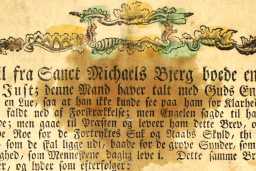 l fra Sanct Michaels Bjerg boede en
Just; denne Mand haver talt med Guds En
en Lue, saa at han ikke kunde see paa ham for Klarhei
faldt ned af Forskrækkelse; men Engelen sagde til ha
nd; men gaae til Præsten og leveer ham dette Brev, o
ve Roe for de Fortryktes Suk og Raabs Skyld, thi
som de skal ligge udi, baade for de grove Synder, som
ghed, som Menneskene daglig leve i. Dette samme Br
er, og lyder som efterfølger: